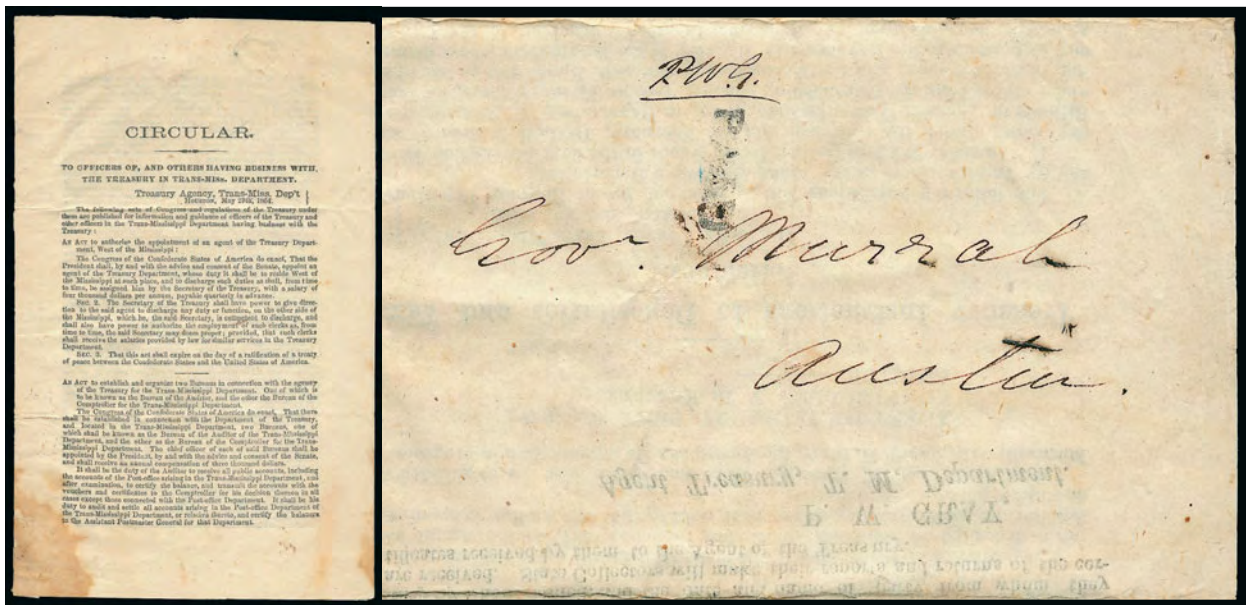 CIRCULAR.
TO OFFICERS OF, AND OTHERS HAVING BUSINESS WITH,
THE TREASURY IN TRANS-MISS. DEPARTMENT.
Treasury Agency, Trans-Miss. Dep't
May 19th, 1864.
The following acts of Congress and regulations of the Treasury under
them are published for information and guidance of officers of the Treasury and
other officers in the Trans-Mississippi Department having business with the
Treasury:
AN ACT to authorize the appointment of an agent of the Treasury Depart-
ment, West of the Mississippi:
The Congress of the Confederate States of America do enact, That the
President shall, by and with the advice and consent of the Senate, appoint an
agent of the Treasury Department, whose duty it shall be to reside West of
the Mississippi at such place, and to discharge such duties as shall, from time
to time, be assigned him by the Secretary of the Treasury, with a salary of
four thousand dollars per annum, payable quarterly in advance.
SEC. 2. The Secretary of the Treasury shall have power to give direc-
tion to the said agent to discharge any duty or function, on the other side of
the Mississippi, which he, the said Secretary, is competent to discharge, and
shall also have power to authorize the employment of such clerks as, from
time to time, the said Secretary may deem proper; provided, that such clerks
shall receive the salaries provided by law for similar services in the Treasury
Department.
SEC. 3. That this act shall expire on the day of a ratification of a treaty
of peace between the Confederate States and the United States of America.
AN ACT to establish and organize two Bureaus in connection with the agency
of the Treasury for the Trans-Mississippi Department. One of which is
to be known as the Bureau of the Auditor, and the other the Bureau of the
Comptroller for the Trans-Mississippi Department.
The Congress of the Confederate States of America do enact, That there
shall be established in connection with the Department of the Treasury,
and located in the Trans-Mississippi Department, two Bureaus, one of
which shall be known as the Bureau of the Auditor of the Trans-Mississippi
Department, and the other as the Bureau of the Comptroller for the Trans-
Mississippi Department. The chief officer of each of said Bureaus shall be
appointed by the President, by and with the advice and consent of the Senate,
and shall receive an annual compensation of three thousand dollars.
It shall be the duty of the Auditor to receive all public accounts, including
the accounts of the Post-office arising in the Trans-Mississippi Department, and
after examination, to certify the balance, and transmit the accounts with the
vouchers and certificates to the Comptroller for his decision thereon in all
cases except those connected with the Post-office Department. It shall be his
duty to audit and settle all accounts arising in the Post-office Department of
the Trans-Mississippi Department, or relative thereto, and certify the balances
to the Assistant Postmaster General for that Department.
P.W.G.
PAID
Gov. Murrah
Austin.
Agent Treasury, T. M. Department.
P. W. GRAY,
tificates received by them to the Agent of the Treasury.
are received. State Collectors will make their reports and returns of the cer-